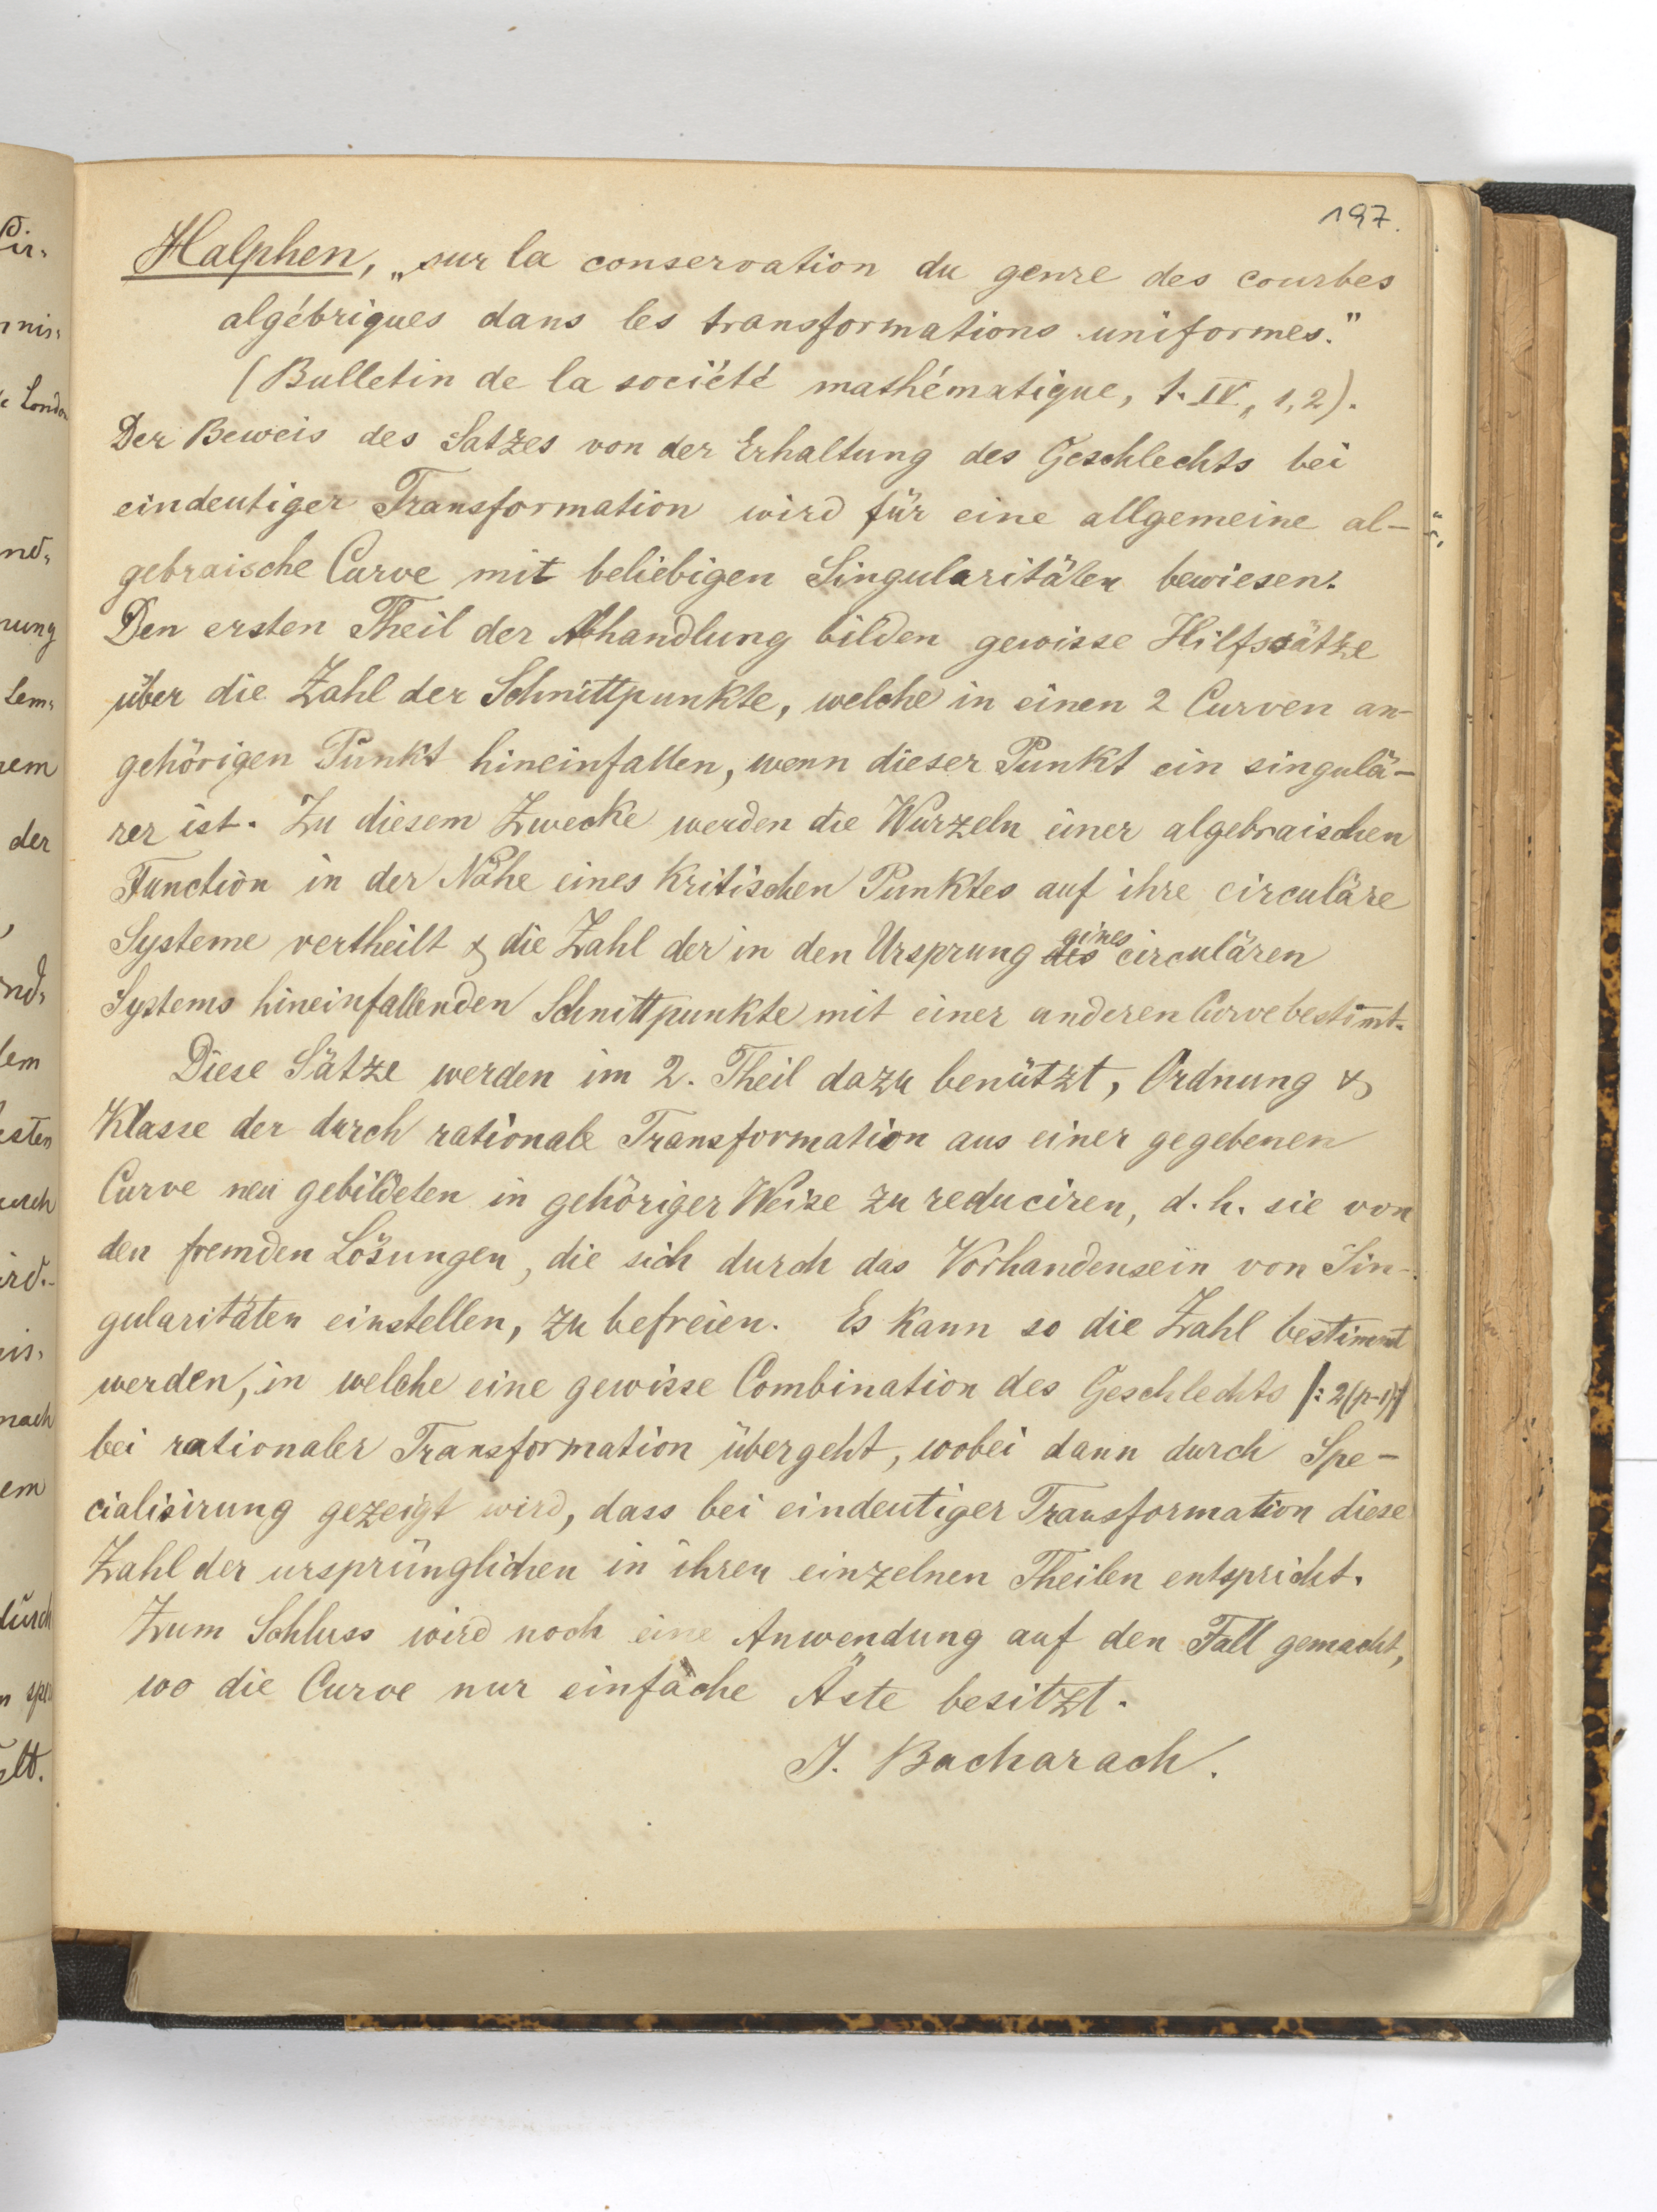 197.
Halphen, „sur la conservation du genre des courbes
algébriques dans les transformations uniformes."
(Bulletin de la société mathématique, t. IV, 1, 2).
Der Beweis des Satzes von der Erhaltung des Geschlechts bei
eindeutiger Transformation wird für eine allgemeine al-
gebraische Curve mit beliebigen Singularitäten bewiesen.
Den ersten Theil der Abhandlung bilden gewisse Hilfssätze
über die Zahl der Schnittpunkte, welche in einen 2 Curven an-
gehörigen Punkt hineinfallen, wenn dieser Punkt ein singulä-
rer ist. Zu diesem Zwecke werden die Wurzeln einer algebraischen
Function in der Nähe eines kritischen Punktes auf ihre circuläre
Systeme vertheilt & die Zahl der in den Ursprung des eines circulären
Systems hineinfallenden Schnittpunkte mit einer anderen Curve bestimt.
Diese Sätze werden im 2. Theil dazu benützt, Ordnung &
Klasse der durch rationale Transformation aus einer gegebenen
Curve neu gebildeten in gehöriger Weise zu reduciren, d. h. sie von
den fremden Lösungen, die sich durch das Vorhandensein von Sin-
gularitäten einstellen, zu befreien. Es kann so die Zahl bestimmt
werden, in welche eine gewisse Combination des Geschlechts |: 2(p-1) :|
bei rationaler Transformation übergeht, wobei dann durch Spe-
cialisirung gezeigt wird, dass bei eindeutiger Transformation diese
Zahl der ursprünglichen in ihren einzelnen Theilen entspricht.
Zum Schluss wird noch eine Anwendung auf den Fall gemacht,
wo die Curve nur einfache Äste besitzt.
J. Bacharach.
der
nach